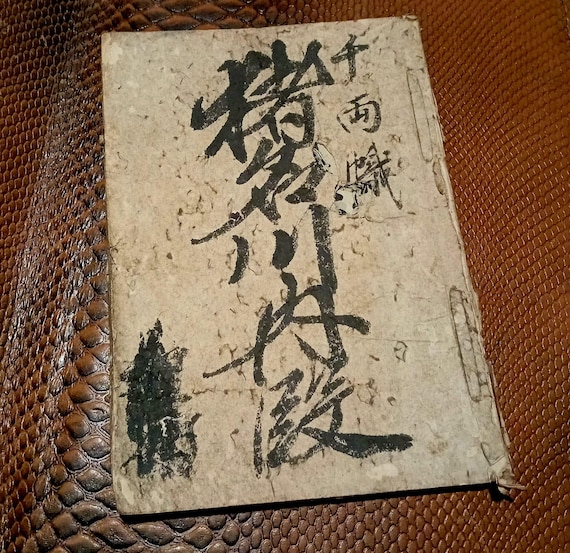 千両幟
猪名川内段